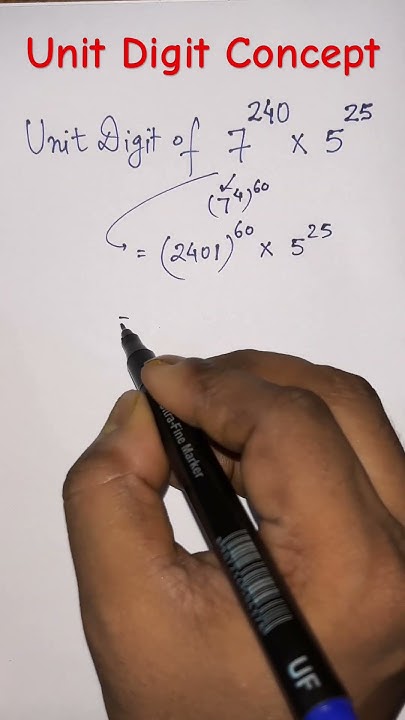 Unit Digit Concept
Unit Digit of 7^240 × 5^25
(7^4)^60
= (2401)^60 × 5^25
=
Ultra-Fine Marker
UF